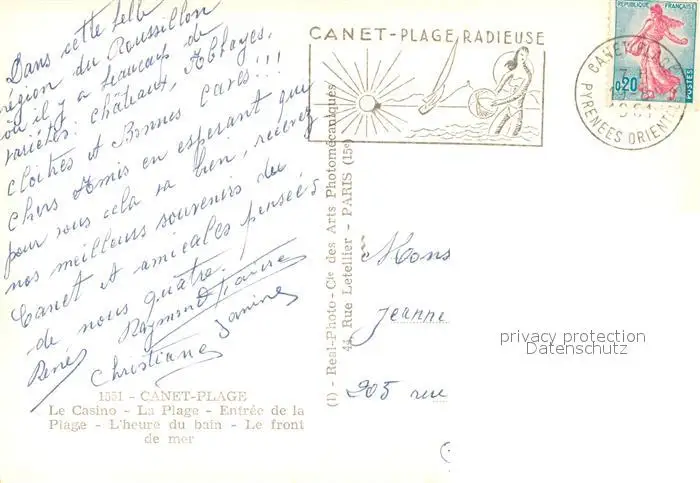 Dans cette belle
région du Roussillon
où il y a beaucoup de
variétés: châteaux, Abbayes,
cloîtres et Bonnes Caves!!!
Chers Amis en esperant que
pour vous cela va bien, recevez
nos meilleurs souvenirs de
Canet et amicales pensées
de nous quatre.
René Raymond
Christiane Janine
1551 - CANET-PLAGE
Le Casino - La Plage - Entrée de la
Plage - L'heure du bain - Le front
de mer
(1) - Real-Photo-Cie des Arts Photomécaniques
44, Rue Letellier - PARIS (15e)
CANET-PLAGE RADIEUSE
REPUBLIQUE FRANÇAISE
0,20
POSTES
CANET-PLAGE
PYRENEES ORIENTALES
Mons
Jeanne
205 rue
privacy protection
Datenschutz